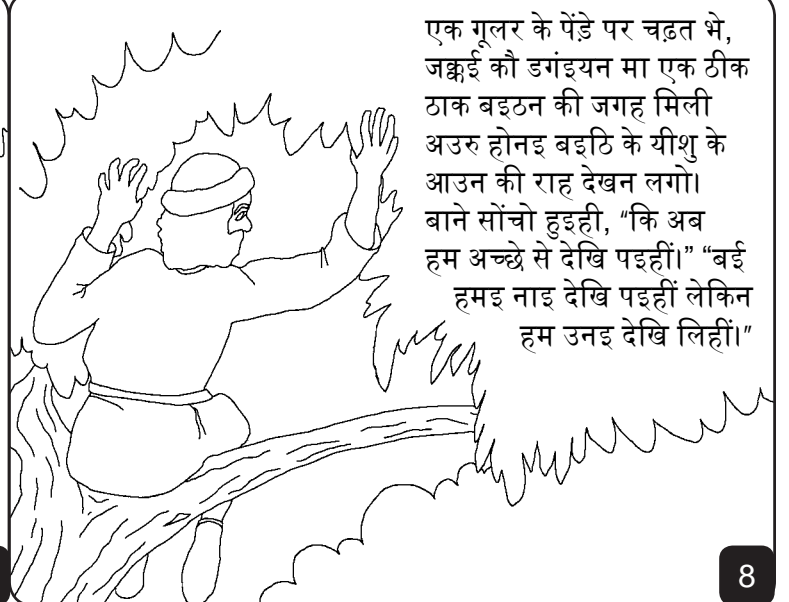 एक गूलर के पेंड़े पर चढ़त भे,
जक्कई कौ डगंइयन मा एक ठीक
ठाक बइठन की जगह मिली
अउरु होनइ बइठि के यीशु के
आउन की राह देखन लगो।
बाने सोंचो हुइही, “कि अब
हम अच्छे से देखि पइहीं।” “बई
हमइ नाइ देखि पइहीं लेकिन
हम उनइ देखि लिहीं।”
8